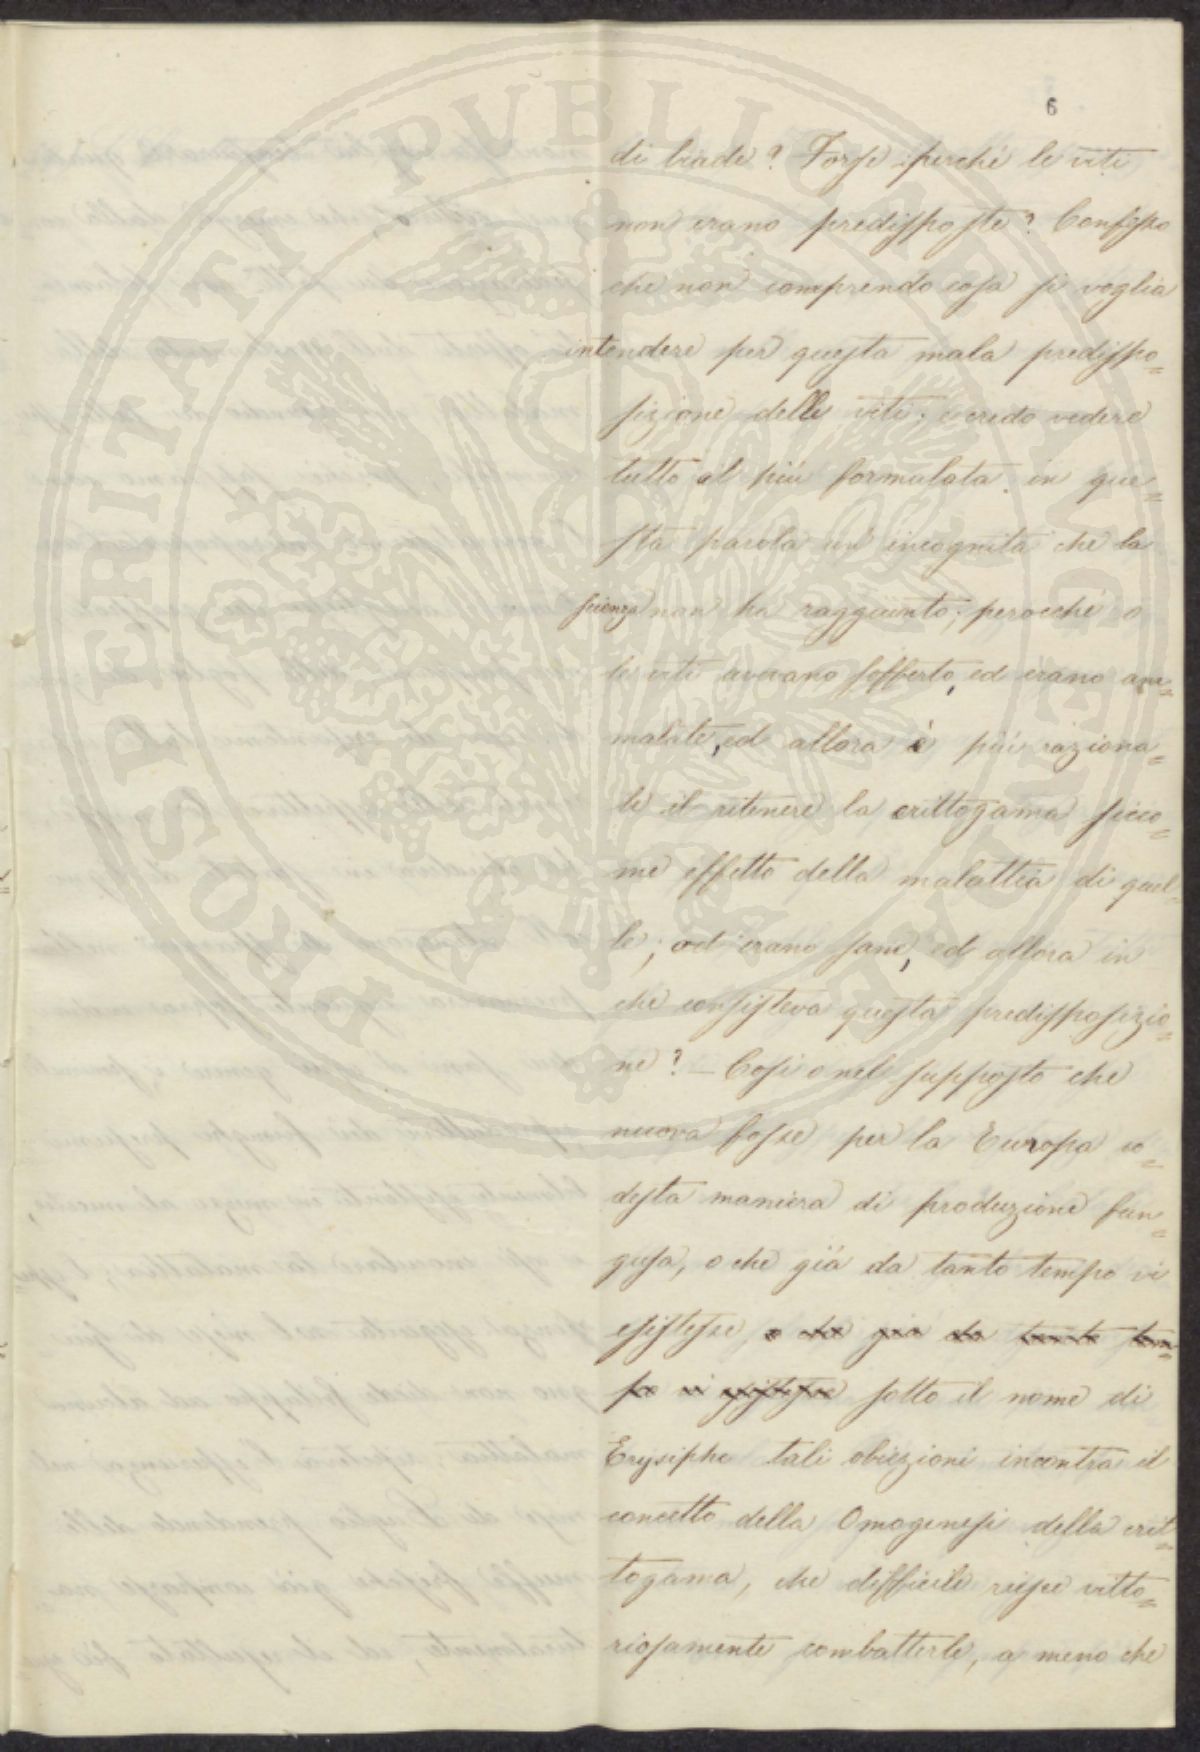 6
di biade? Forse perché le viti
non erano predisposte? Confesso
che non comprendo cosa si voglia
intendere per questa mala predispo=
sizione delle viti; e credo vedere
tutto al più formulata in que=
sta parola un' incognita che la
scienza non ha raggiunto; perocché o
le viti avevano sofferto, ed erano am=
malate, ed allora è più raziona=
le il ritenere la crittogama sicco=
me effetto della malattia di quel=
le; od erano sane, ed allora in
che consisteva questa predisposizio=
ne? – Così o nel supposto che
nuova fosse per la Europa co=
desta maniera di produzione fun=
gosa, o che già da tanto tempo vi
esistesse, o che già da tanto tem=
po vi esistesse sotto il nome di
Erysiphe tali obiezioni incontra il
concetto della Omogenesi della crit=
togama, che difficile riesce vitto=
riosamente combatterle, a meno che
PROSPERITATI PUBLICAE AUGENDAE